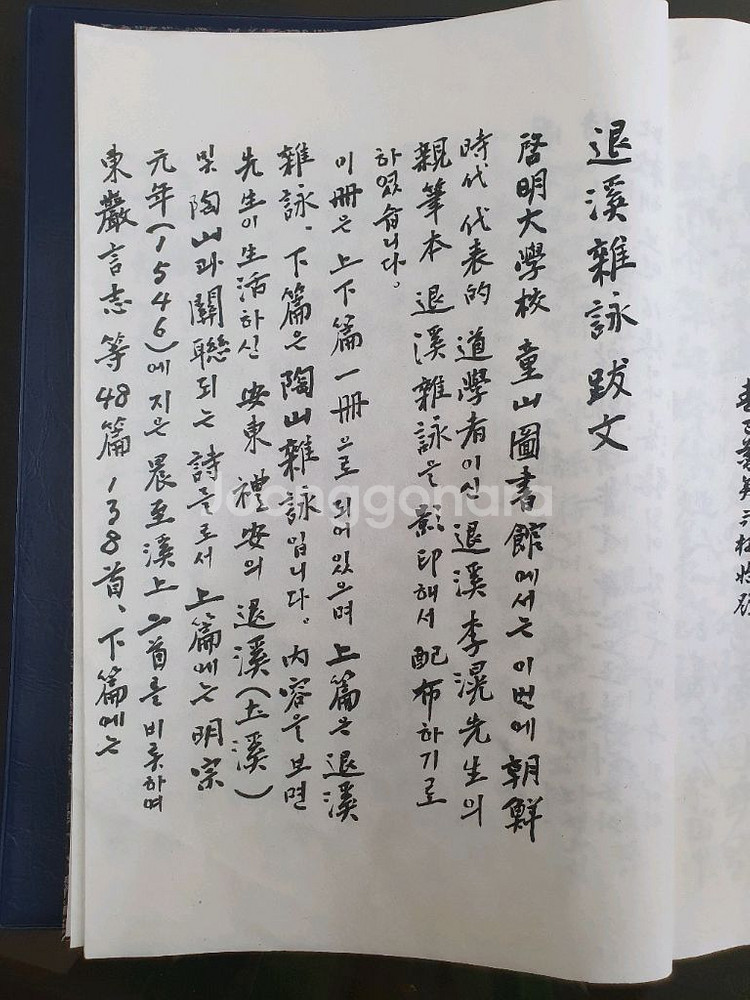 退溪雜詠 跋文
啓明大學校 童山圖書館에서는 이번에 朝鮮
時代 代表的 道學者이신 退溪 李滉先生의
親筆本 退溪雜詠을 影印해서 配布하기로
하였습니다。
이 冊은 上下篇 一冊으로 되어있으며 上篇은 退溪
雜詠、下篇은 陶山雜詠입니다。內容을 보면
先生이 生活하신 安東 禮安의 退溪(土溪)
및 陶山과 關聯되는 詩들로서 上篇에는 明宗
元年(1546)에 지은 晨至溪上 二首를 비롯하며
東巖言志 等 48篇 138首、下篇에는
Joonggonara